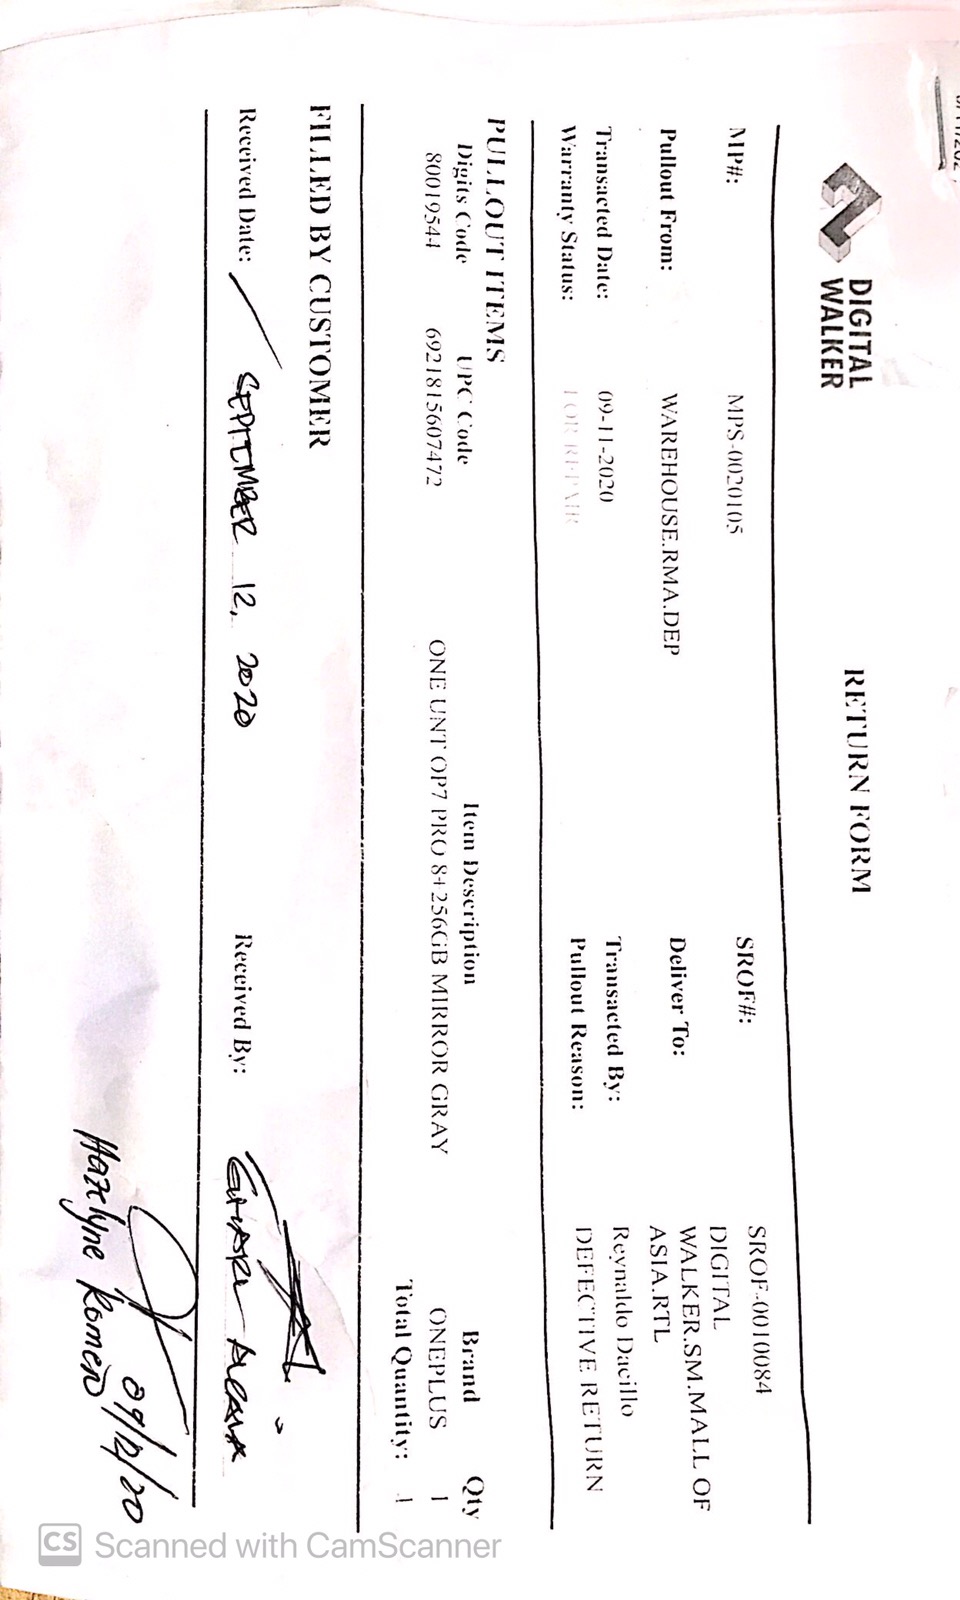 DIGITAL
WALKER
RETURN FORM
MP#: MPS-0020105 SROF#: SROF-0010084
Pullout From: WAREHOUSE.RMA.DEP Deliver To: DIGITAL
WALKER.SM.MALL OF
ASIA.RTL
Transacted Date: 09-11-2020 Transacted By: Reynaldo Dacillo
Warranty Status: FOR REPAIR Pullout Reason: DEFECTIVE RETURN
PULLOUT ITEMS
Digits Code UPC Code Item Description Brand Qty
80019544 6921815607472 ONE UNT OP7 PRO 8+256GB MIRROR GRAY ONEPLUS 1
Total Quantity: 1
FILLED BY CUSTOMER
Received Date: SEPTEMBER 12, 2020 Received By:
09/12/20
Hazelyne Romero
CS Scanned with CamScanner